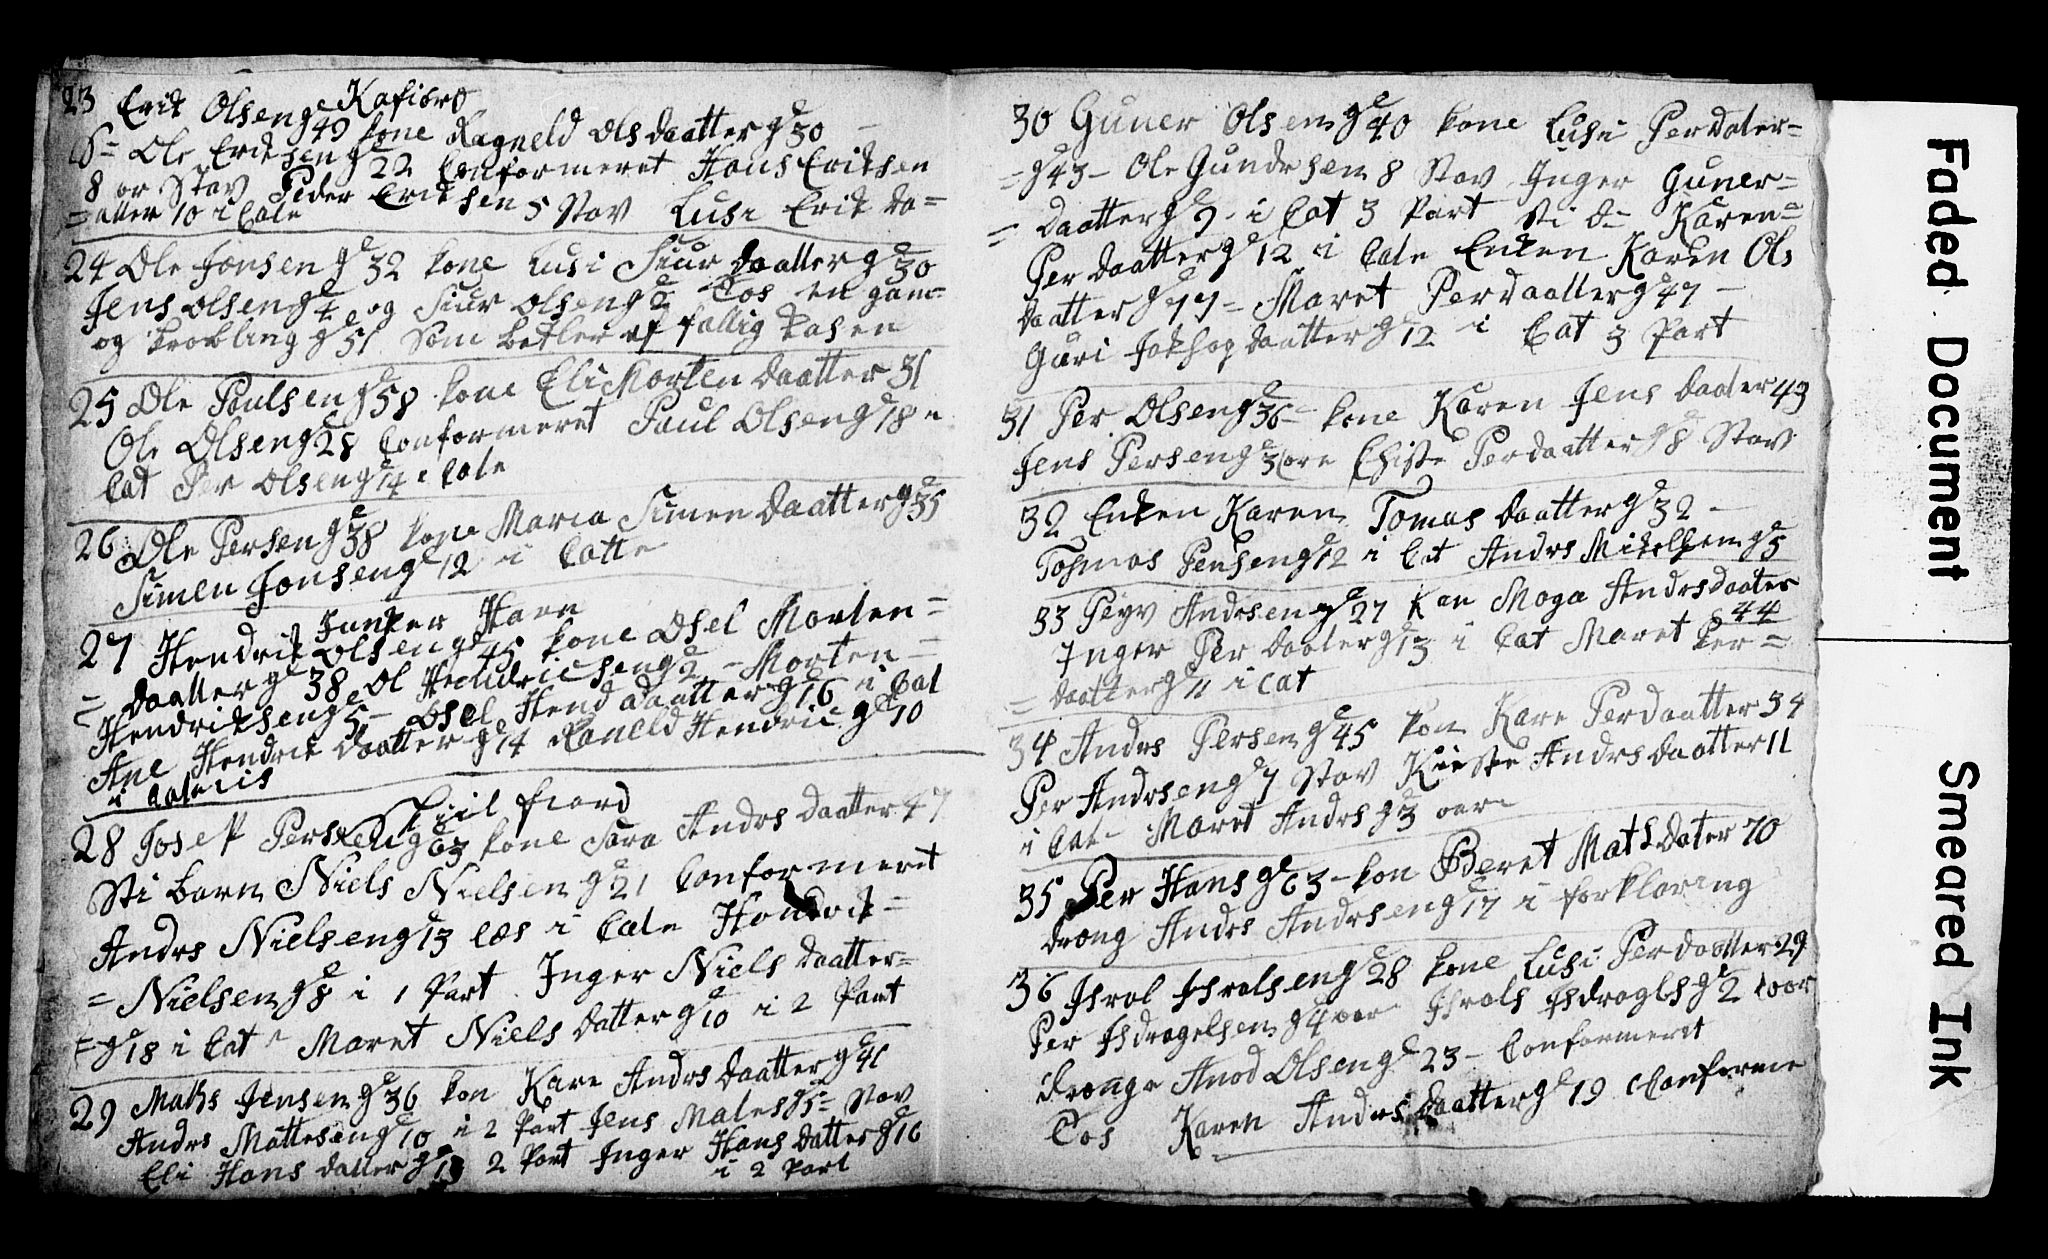 Kafiord
23 Erik Olsen gd 49 kone Ragneld Olsdaatter gd 50 –
Ole Eriksen gd 22 Conformeret Hans Eriksen
8 or Stav Peder Eriksen 5 Stav Lusi Erik da=
=atter 10 i Cate
24 Ole Jonsen gd 32 kone Lusi Siur daatter gd 30
Jens Olsen gd 4 og Siur Olsen gd 2 Los en gam=
og krobling gd 51 Som betler af fattig kasen
25 Ole Poulsen gd 58 kone Eli Morten daatter 51
Ole Olsen gd 28 Conformeret Paul Olsen gd 18 i
Cat Per Olsen gd 14 i Cate
26 Ole Persen gd 38 kone Maria Simen daatter gd 35
Simen Jonsen gd 12 i Catte
Junker Havn
27 Hendrik Olsen gd 45 kone Osel Morten=
=daatter gd 38 Ol Hendricsen gd 2 – Morten –
Hendriksen gd 5 – Osel Hend daatter gd 16 i Cat
Ane Hendrik daatter gd 14 Raneld Hendric gd 10
i Catecis
Kiil fiord
28 Josep Persen gd 63 kone Sara Andrs daatter 47
Sti barn Niels Nielsen gd 21 Conformerit
Andrs Nielsen gd 13 læs i Cate Hendrik=
=Nielsen gd 8 i 1 Part Inger Niels daatter=
=gd 18 i Cat Maret Niels datter gd 10 i 2 Part
29 Maths Jensen gd 36 kon Kare Andrs daatter gd 41
Andrs Mattesen gd 10 i 2 Part Jens Mates gd 5= Stav
Eli Hans datter gd 13 2 Part Inger Hans datter gd 16
i 2 Part
30 Guner Olsen gd 40 kone Lusi Perdater=
=gd 43– Ole Gundrsen 8 Stav Inger Guner=
=daatter gd 9 i Cat 3 Part sti d– Karen=
Per daatter gd 12 i Cate Enken Karen Ols
daatter gd 77– Maret Perdaatter gd 47 –
Guri Jokhop daatter gd 12 i Cat 3 Part
31 Per Olsen gd 36– kone Karen Jens daater 43
Jens Persen gd 3 ore Chiste Perdaatter gd 8 Stav
32 Enken Karen Tomas daatter gd 32 –
Tohmas Pensen gd 12 i Cat Andrs Mikelsen gd 5
33 Peyv Andrsen gd 27 Kon Moga Andrsdaater
44
Inger Per daater gd 13 i Cat Maret Per=
=daatter gd 11 i Cat
34 Andrs Persen gd 45 kon Kare Perdaatter 34
Per Andrsen gd 7 Stav Kirste Andrs daatter 11
i Cat– Maret Andrs gd 3 oar–
35 Per Hans gd 63– kon Beret Mats dater 70
drong Andrs Andrsen gd 17 i forklaring
36 Isral Isralsen gd 28 kone Lusi Perdaatter 29
Per Isdragelsen gd 4 oar Israls Isdragls gd 2 oar
drenge Anod Olsen gd 23– Conformerit
Los Karen Andrs daatter gd 19 Conforme
Faded Document
Smeared Ink